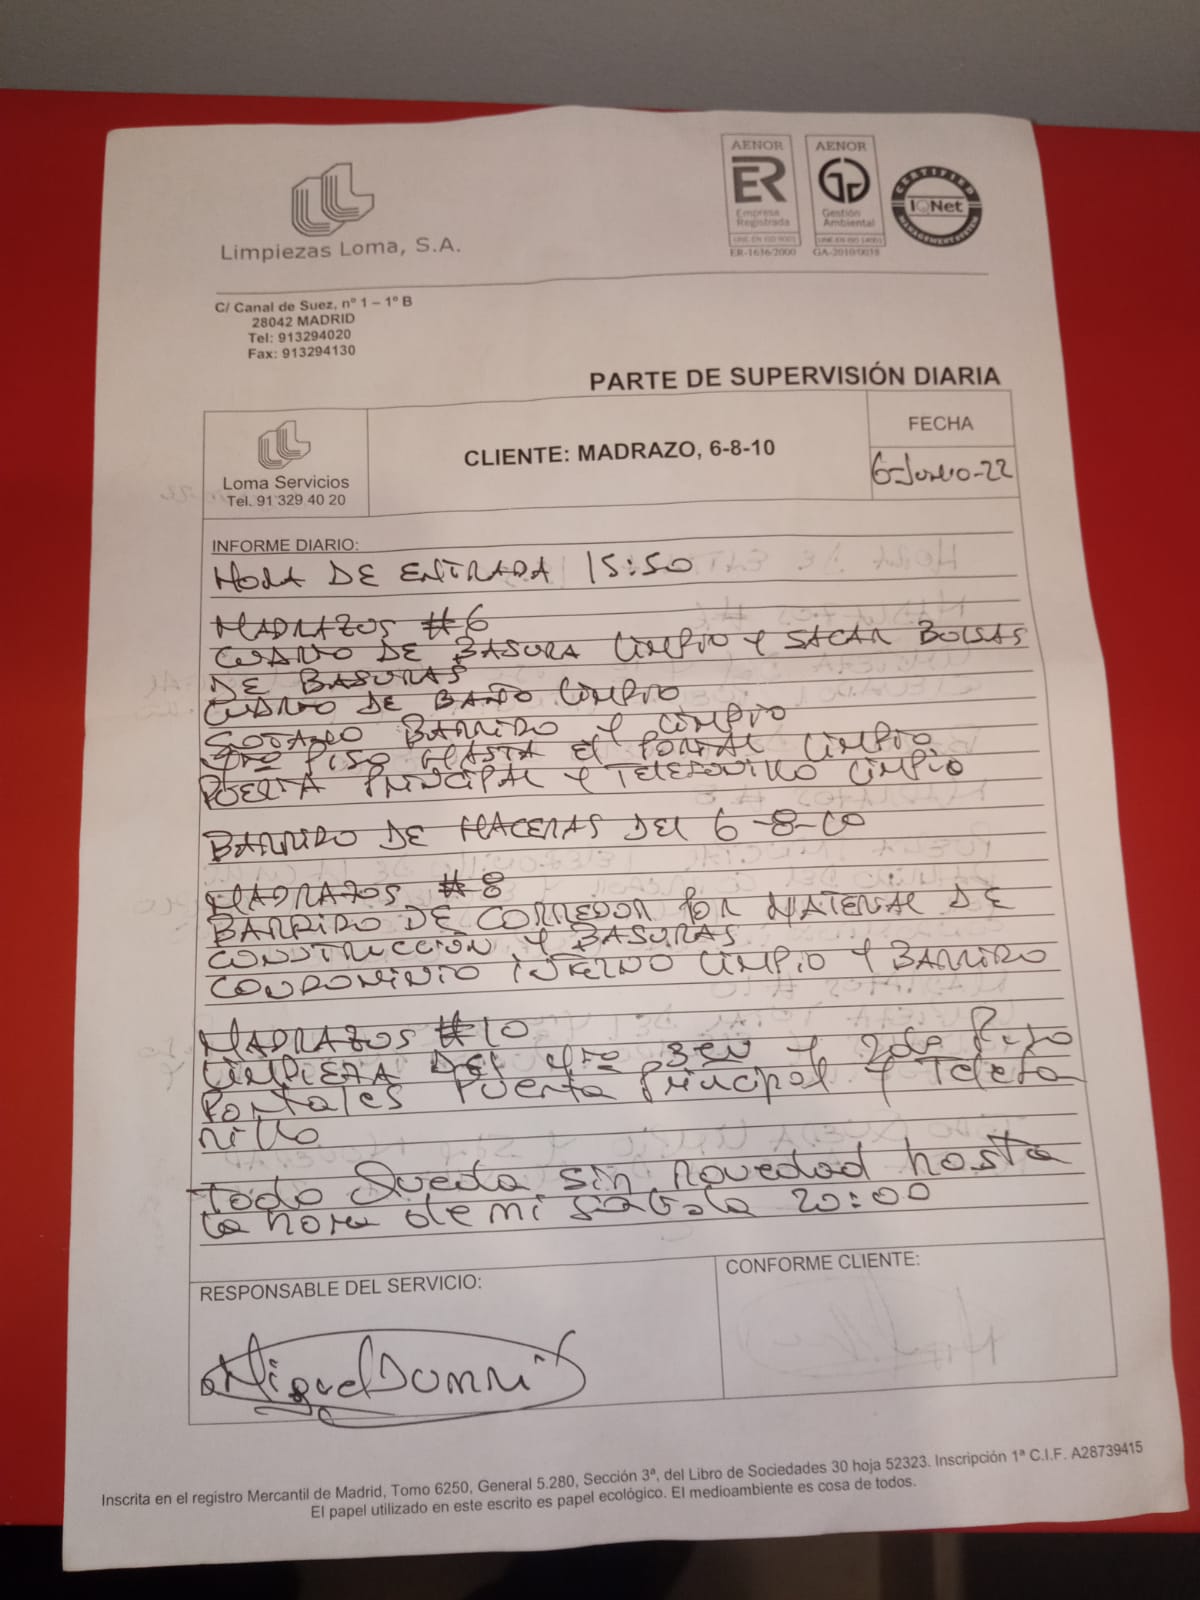 Limpiezas Loma, S.A.
AENOR
ER
Empresa
Registrada
UNE-EN ISO 9001
ER-1636/2000
AENOR
Gestión
Ambiental
UNE-EN ISO 14001
GA-2010/0038
CERTIFIED
IQNet
MANAGEMENT SYSTEM
C/ Canal de Suez, nº 1 – 1º B
28042 MADRID
Tel: 913294020
Fax: 913294130
PARTE DE SUPERVISIÓN DIARIA
Loma Servicios
Tel. 91 329 40 20
CLIENTE: MADRAZO, 6-8-10
FECHA
6-Junio-22
INFORME DIARIO:
HORA DE ENTRADA 15:50
MADRAZOS #6
CUARTO DE BASURA LIMPIO Y SACAR BOLSAS
DE BASURAS
CUARTO DE BAÑO LIMPIO
SOTANO BARRIDO Y LIMPIO
4TO PISO HASTA El PORTAL LIMPIO
PUERTA PRINCIPAL Y TELEFONILLO LIMPIO
BARRIDO DE MACERAS DEL 6-8-10
MADRAZOS #8
BARRIDO DE CORREDOR POR MATERIAL DE
CONSTRUCCION Y BASURAS
CONDOMINIO INTERNO LIMPIO Y BARRIDO
MADRAZOS #10
LIMPIEZA DEL 4to 3ER Y 2do Piso
Portales Puerta Principal Y Telefo
nillo
Todo Queda sin novedad hasta
la hora de mi salida 20:00
RESPONSABLE DEL SERVICIO:
CONFORME CLIENTE:
Miguel
Inscrita en el registro Mercantil de Madrid, Tomo 6250, General 5.280, Sección 3ª, del Libro de Sociedades 30 hoja 52323. Inscripción 1ª C.I.F. A28739415
El papel utilizado en este escrito es papel ecológico. El medioambiente es cosa de todos.